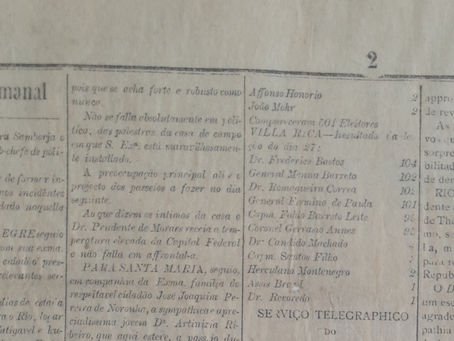 2
manal
ra Samborja o
chefe de poli-
de formar in-
nos incidentes
dado naquella
EGRE seguio
com sua exma.
cidadão pres-
relevantes ser-
dias de estaia
ra o Rio, logar
fatigavel e hu-
pois que se acha forte e robusto como
nunca.
Não se falla absolutamente em poli-
tica, das palestras da casa de campo
em que S. Exª. está
installado.
A preocupação principal ali é o
projecto dos passeios a fazer no dia
seguinte.
Ao que dizem os intimos da casa o
Dr. Prudente de Moraes receia a tem-
peratura elevada da Capital Federal
e não falla em affrontal-a.
PARA SANTA MARIA, seguio,
em companhia da Exma. familia do
respeitavel cidadão José Joaquim Pe-
reira de Noronha, a sympathica e apre-
ciadissima joven Dª. Artinizia Ri-
beiro, que aqui estere, a passeio du-
Affonso Honorio 2
João Mohr 2
Compareceram 501 Eleitores
VILLA RICA—Resultado da e-
gão do dia 27:
Dr. Frederico Bastos 104
General Menna Barreto 102
Dr. Romagueira Correa 102
General Firmino de Paula 101
Capm. Fabio Barreto Leite
Coronel Gervasio Annes
Dr Candido Machado
Capm. Santos Filho
Herculano Montenegro 2
Assis Brasil
Dr. Revoredo
SERVIÇO TELEGRAPHICO
DO
appro
de rev
As
vo
se
bilitad
der
RIO
de Tha
mo
la, a
mais
Republ
O D
um esc
agrad